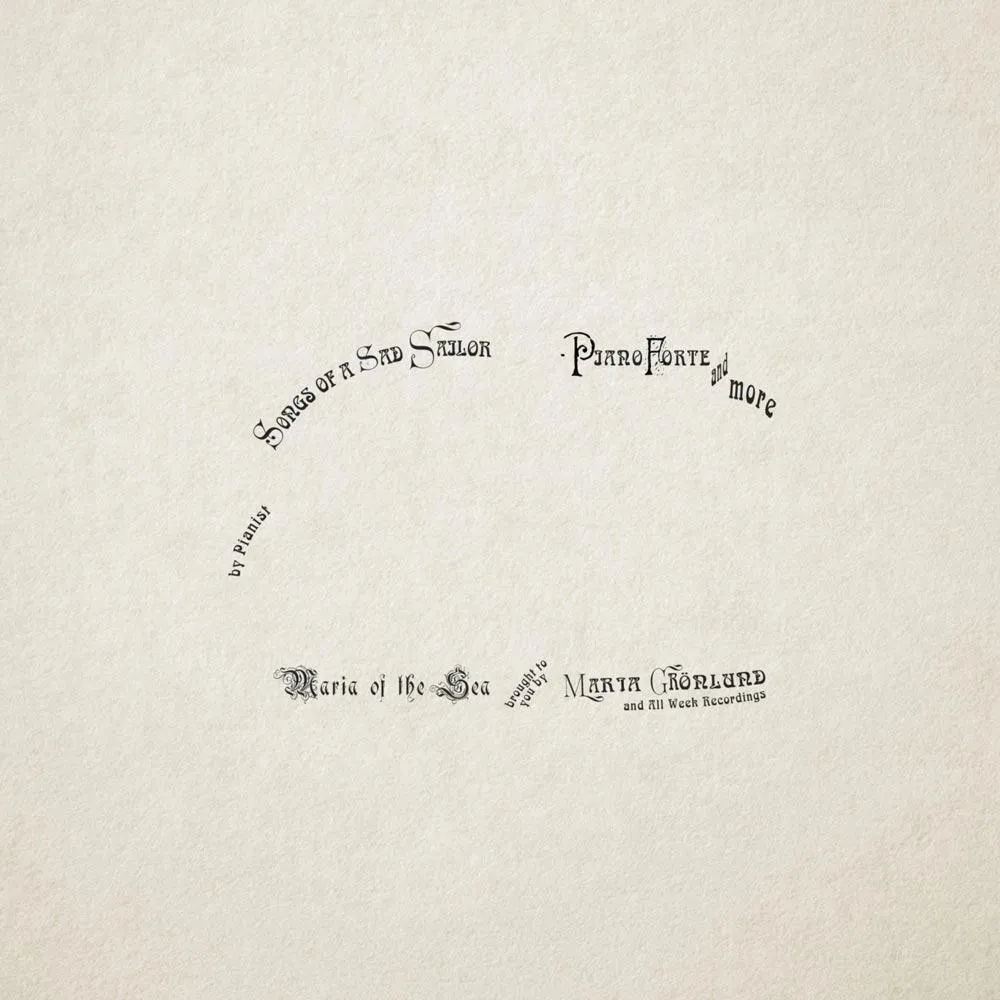 Songs of a Sad Sailor
- PianoForte
and
more
by Pianist
Maria of the Sea
brought to
you by
Maria Grönlund
and All Week Recordings